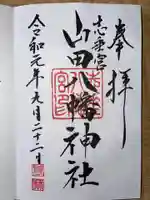 奉拝
志垂宮
山田八幡神社
令和元年九月二十二日